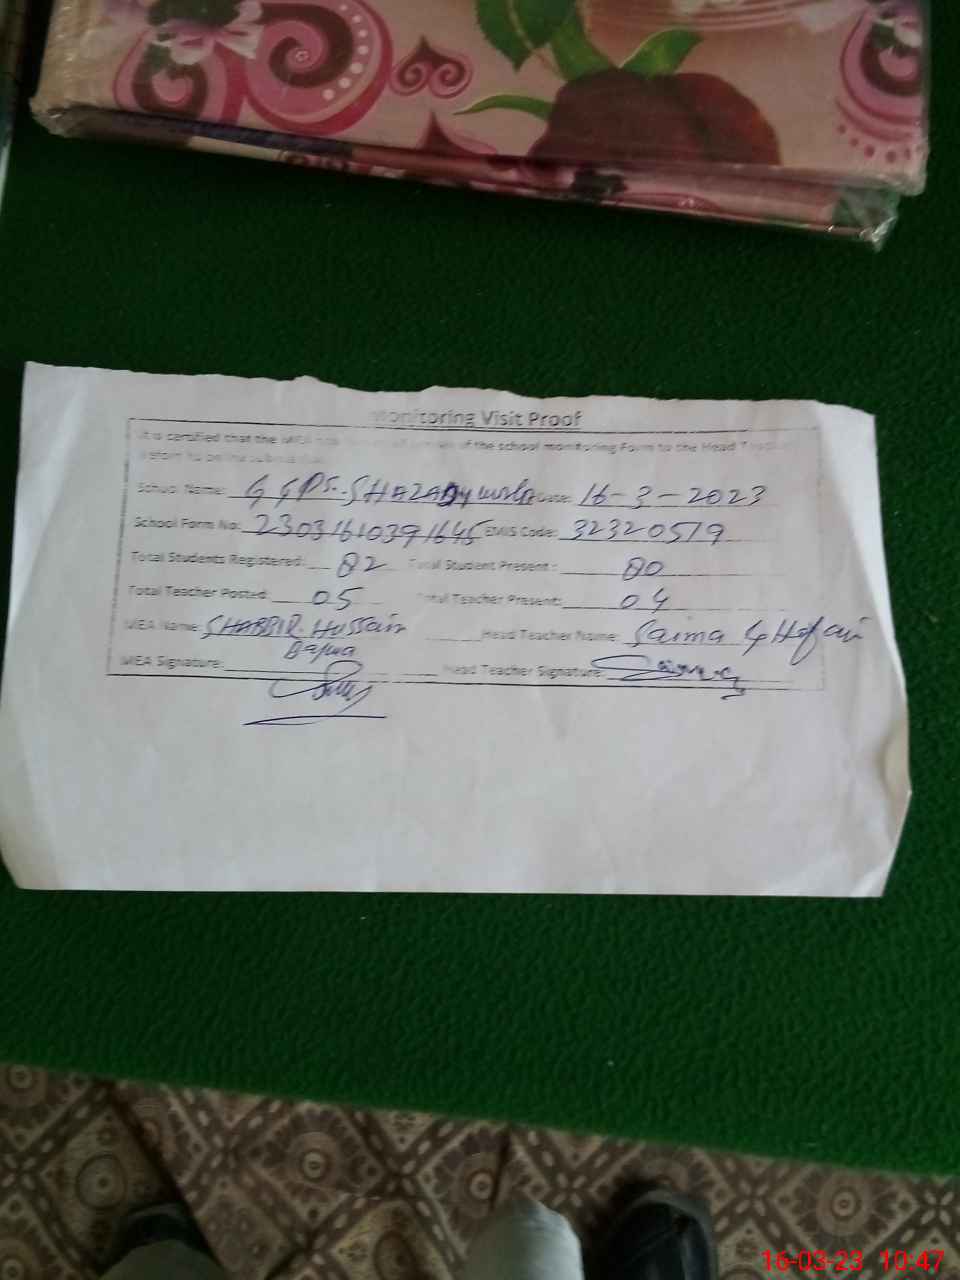 Monitoring Visit Proof
It is certified that the MEA has of the school monitoring Form to the Head
before to be
School Name: GGPS. SHAZADY Date: 16-3-2023
School Form No: 23031610391645 EMIS Code: 32320519
Total Students Registered: 82 Total Student Present: 80
Total Teacher Posted: 05 Total Teacher Present: 04
MEA Name: SHABBIR Hussain Head Teacher Name: Saima
Bajwa
MEA Signature: Head Teacher Signature:
16-03-23 10:47